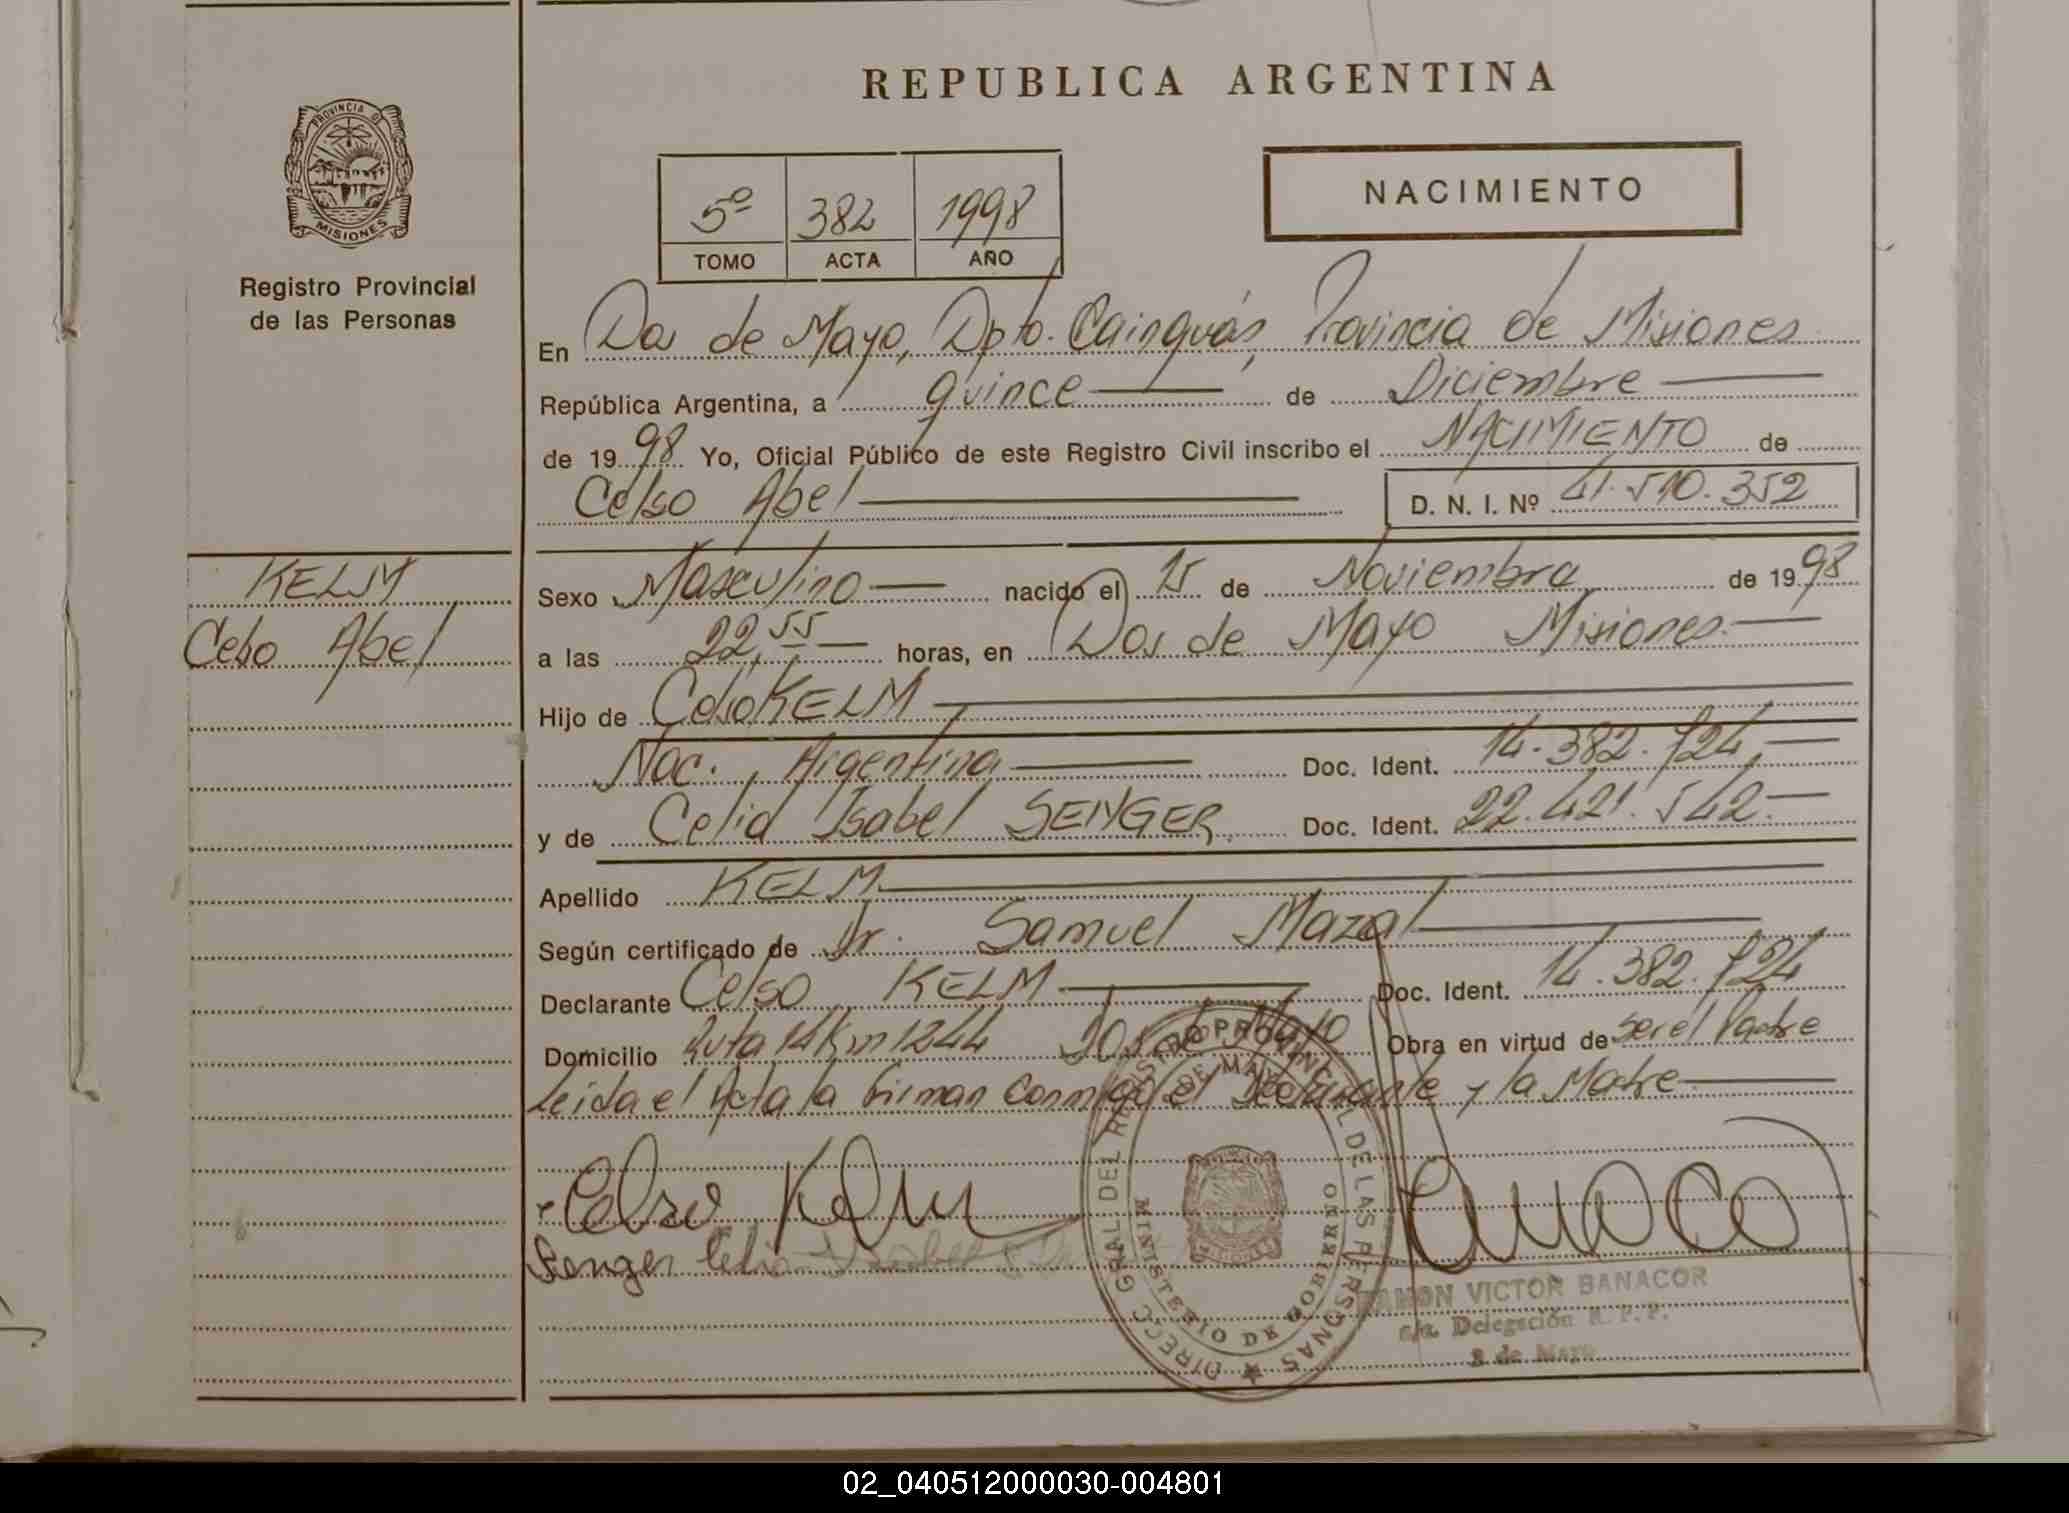 REPUBLICA ARGENTINA
PROVINCIA DE
MISIONES
Registro Provincial
de las Personas
5º 382 1998
TOMO ACTA AÑO
NACIMIENTO
En Dos de Mayo, Dpto. Cainguás, Provincia de Misiones
República Argentina, a quince de Diciembre
de 1998 Yo, Oficial Público de este Registro Civil inscribo el NACIMIENTO de
Celso Abel D. N. I. Nº 41.510.352
KELM
Celso Abel
Sexo Masculino nacido el 15 de Noviembre de 1998
a las 22,55 horas, en Dos de Mayo Misiones.
Hijo de Celso KELM
Nac. Argentina Doc. Ident. 14.382.724
y de Celia Isabel SENGER Doc. Ident. 22.421.542.
Apellido KELM
Según certificado de Dr. Samuel Mazal
Declarante Celso KELM Doc. Ident. 14.382.724
Domicilio Ruta 14 Km 1244 Dos de Mayo Obra en virtud de ser el Padre
Leida el Acta la firman conmigo el Declarante y la Madre
Celso Kelm
Senger Celia Isabel
DIRECC. GRAL DEL REGISTRO PROVINCIAL DE LAS PERSONAS
DE MAYO
MINISTERIO DE GOBIERNO
RAMON VICTOR BANACOR
c/a. Delegación R. P. P.
2 de Mayo
02_040512000030-004801